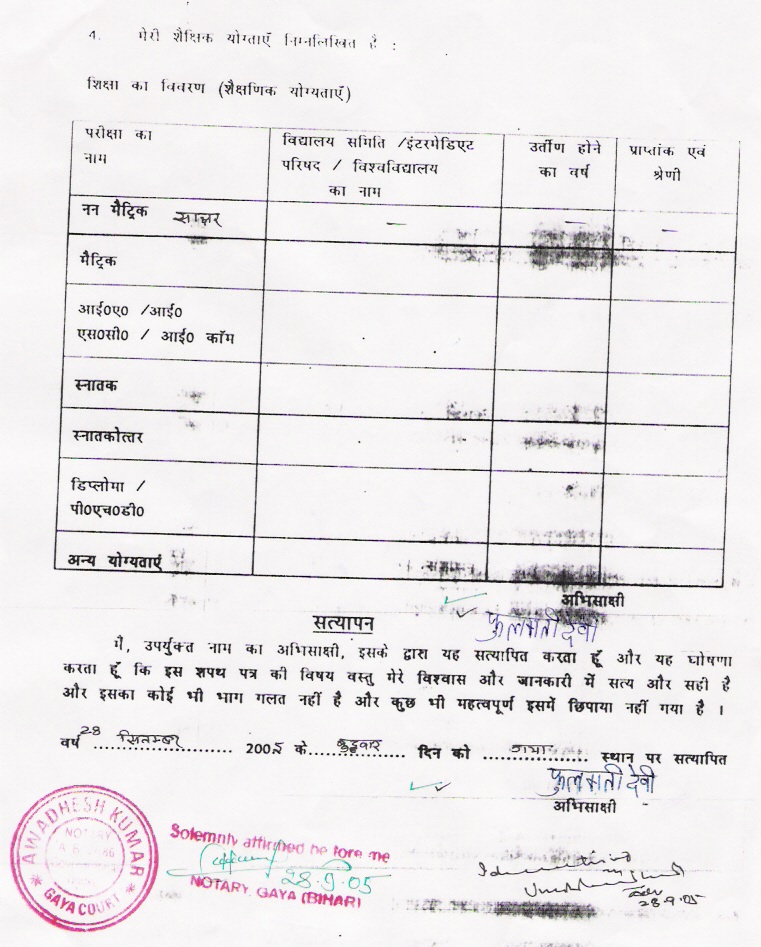 4. मेरी शैक्षिक योग्ताएँ निम्नलिखित है :
शिक्षा का विवरण (शैक्षणिक योग्यताएँ)
परीक्षा का नाम
विद्यालय समिति /इंटरमेडिएट
परिषद / विश्वविद्यालय
का नाम
उर्तीण होने
का वर्ष
प्राप्तांक एवं
श्रेणी
नन मैट्रिक साक्षर – – –
मैट्रिक
आई०ए० /आई०
एस०सी० / आई० कॉम
स्नातक
स्नातकोत्तर
डिप्लोमा /
पी०एच०डी०
अन्य योग्यताएं
अभिसाक्षी
फुलमती देवी
सत्यापन
मै, उपर्युक्त नाम का अभिसाक्षी, इसके द्वारा यह सत्यापित करता हूँ और यह घोषणा
करता हूँ कि इस शपथ पत्र की विषय वस्तु मेरे विश्वास और जानकारी में सत्य और सही है
और इसका कोई भी भाग गलत नहीं है और कुछ भी महत्वपूर्ण इसमें छिपाया नहीं गया है ।
वर्ष 28 सितम्बर 2005 के बुद्धवार दिन को गया स्थान पर सत्यापित
फुलमती देवी
अभिसाक्षी
AWADHESH KUMAR
NOTARY
GAYA COURT
Solemnly affirmed before me
28.9.05
NOTARY, GAYA (BIHAR)
28.9.05